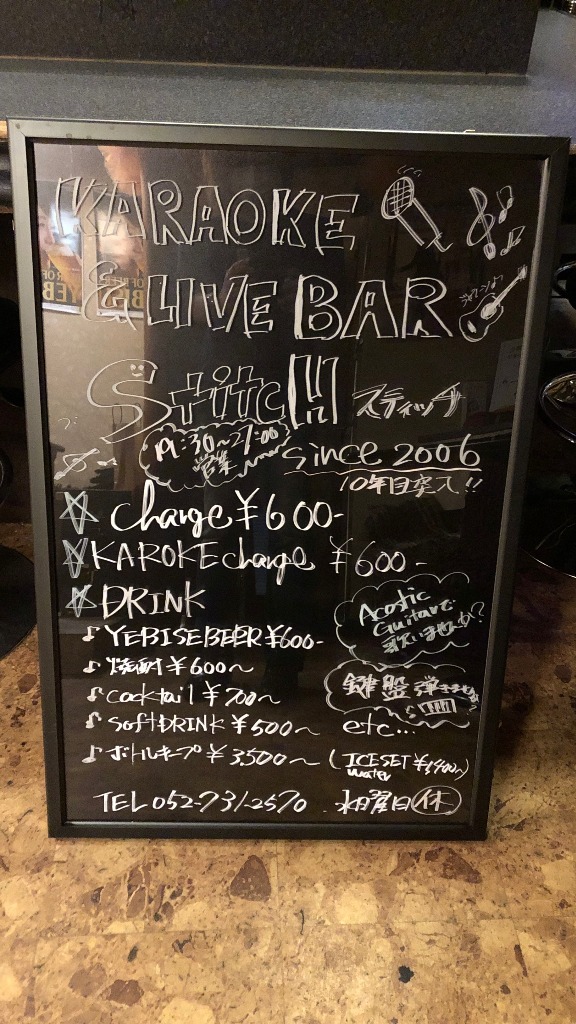 KARAOKE
& LIVE BAR
StitcH スティッチ
19:30~27:00
営業
since 2006
10年目突入!!
☆ charge ¥600-
☆ KAROKE charge ¥600-
☆ DRINK
♪ YEBISE BEER ¥600-
♪ 焼酎 ¥600~
♪ cocktail ¥700~
♪ Soft DRINK ¥500~
♪ ボトルキープ ¥3,500~
(ICE SET ¥1,400~)
water
Acostic
Guitarで
歌いませんか?
鍵盤弾きませんか
etc...
TEL 052-731-2570 水曜日 休